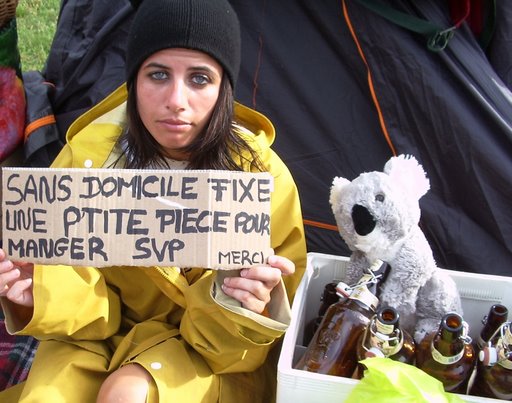 SANS DOMICILE FIXE
UNE PTITE PIECE POUR
MANGER SVP MERCI